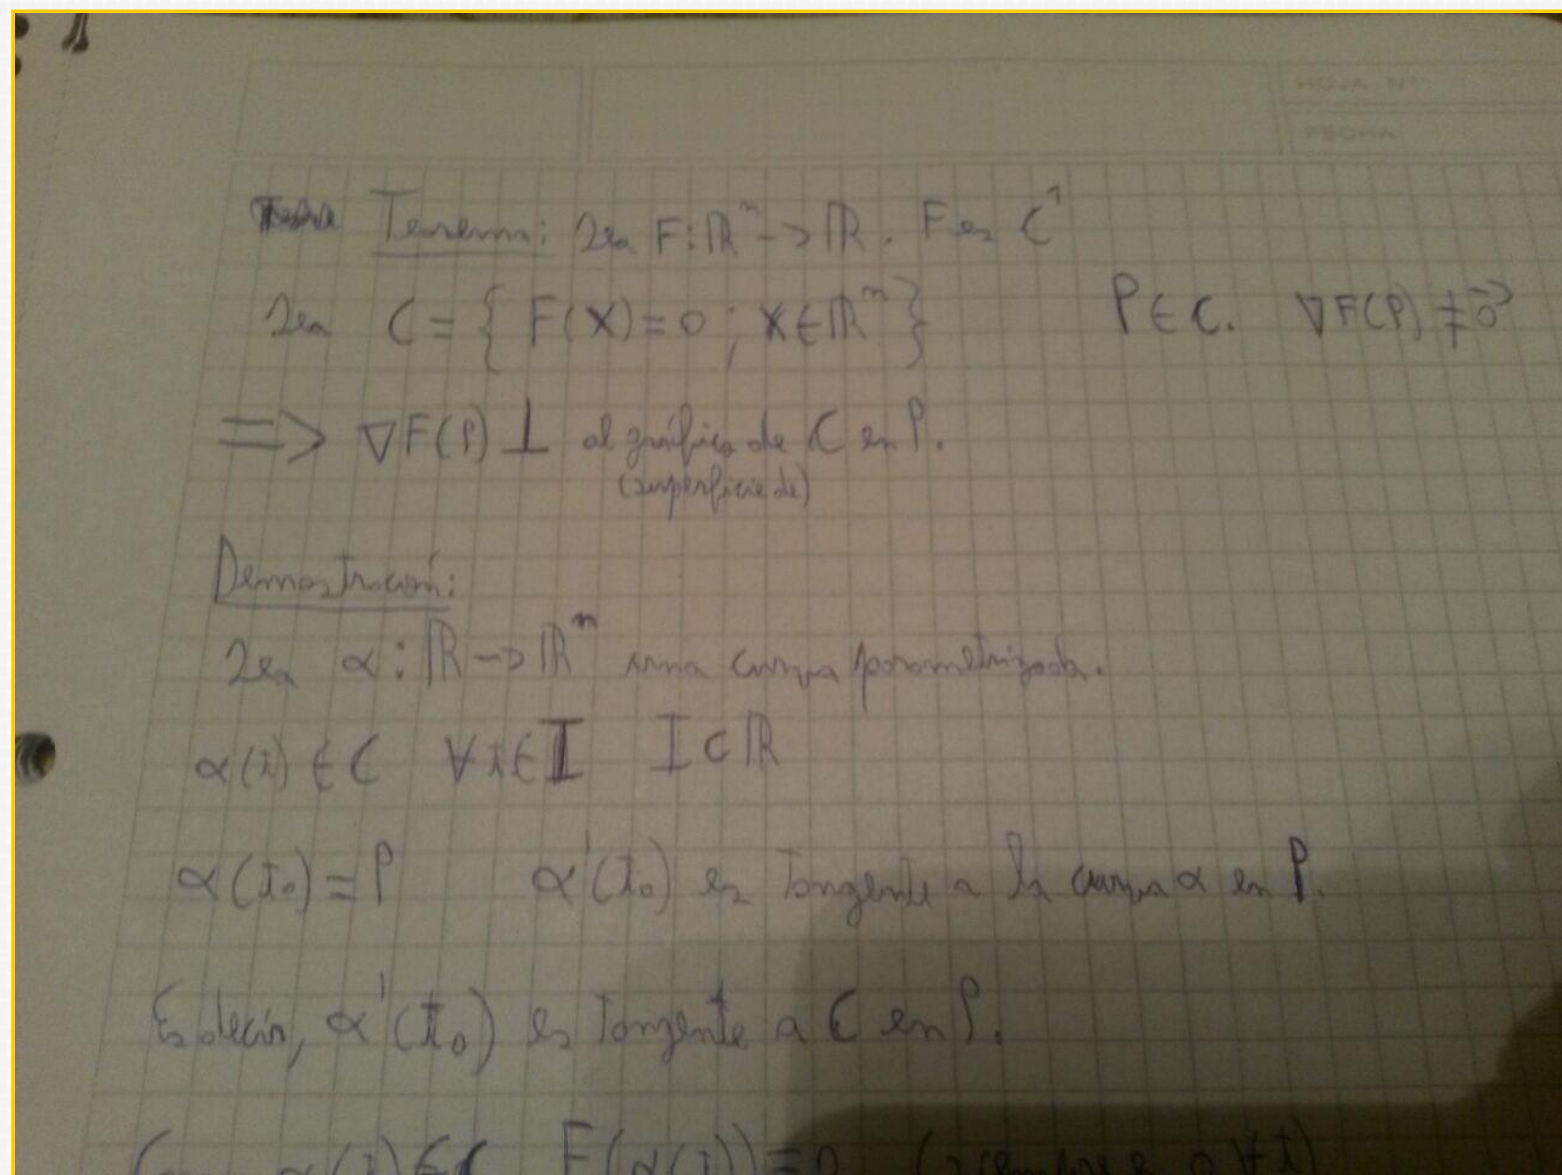 HOJA Nº
FECHA
Teorema: Sea F: ℝⁿ -> ℝ. F es C¹
Sea C = { F(X) = 0 ; X ∈ ℝⁿ } P ∈ C. ∇F(P) ≠ 0⃗
=> ∇F(P) ⊥ al gráfico de C en P.
(superficie de)
Demostración:
Sea α: ℝ -> ℝⁿ una curva parametrizada.
α(t) ∈ C ∀t ∈ I I ⊂ ℝ
α(t₀) = P α'(t₀) es tangente a la curva α en P.
Es decir, α'(t₀) es tangente a C en P.
Como α(t) ∈ C F(α(t)) = 0 ( 0 ∀t)